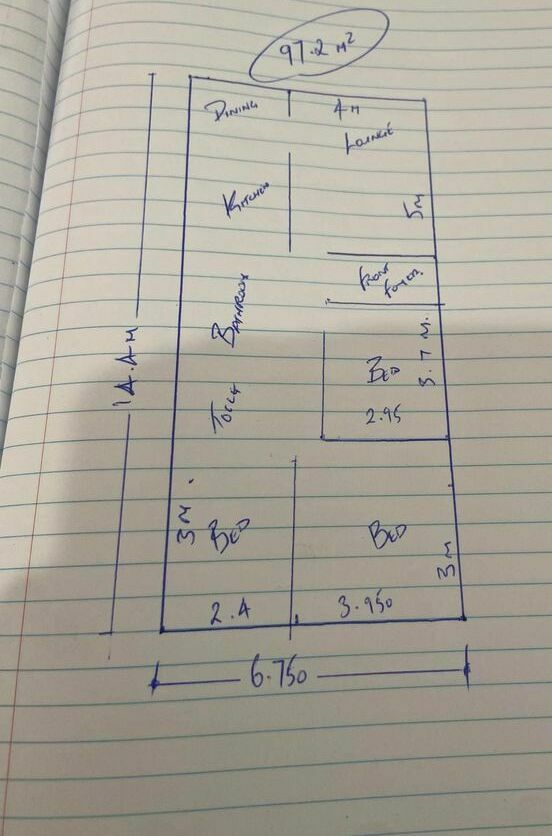 97.2 M²
DINING
4M
LOUNGE
KITCHEN
5M
FRONT
FOYER
BATHROOM
14.4M
BED
3.7M.
2.95
TOILET
3M
BED
BED
3M
2.4
3.950
6.750